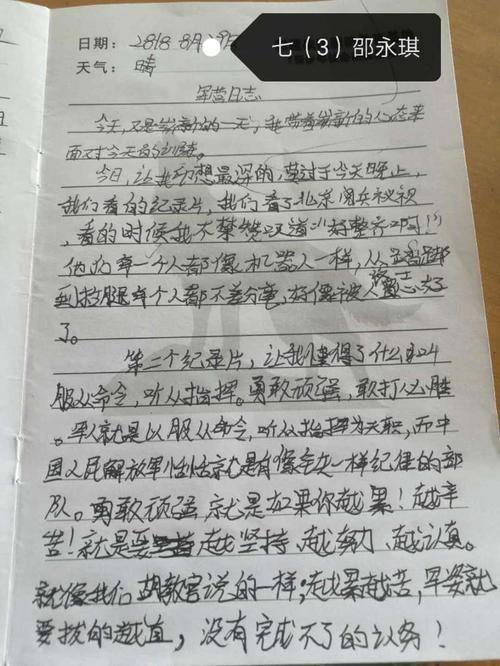 七（3）邵永琪
日期：2018.8月29日
天气：晴
军营日志
今天，又是崭新的一天，我带着崭新的心态来
面对今天的训练。
今日，让我印想最深的，莫过于今天晚上，
我们看的纪录片，我们看了北京阅兵秘初
，看的时候我不禁赞叹道“好整齐啊！”
他们每一个人都像机器人一样，从踏脚
到放腿每个人都不差分毫，好像被人
了。
第二个纪录片，让我懂得了什么叫
服从命令，听从指挥。勇敢顽强，敢打必胜
。军人就是以服从命令，听从指挥为天职，而中
国人民解放军恰恰就是有像一样纪律的部
队。勇敢顽强，就是如果你越累！越辛
苦！就是要越坚持、越努力、越认真。
就像我们胡教官说的一样；越累越苦，军姿就
要拔的越直，没有完成不了的任务！